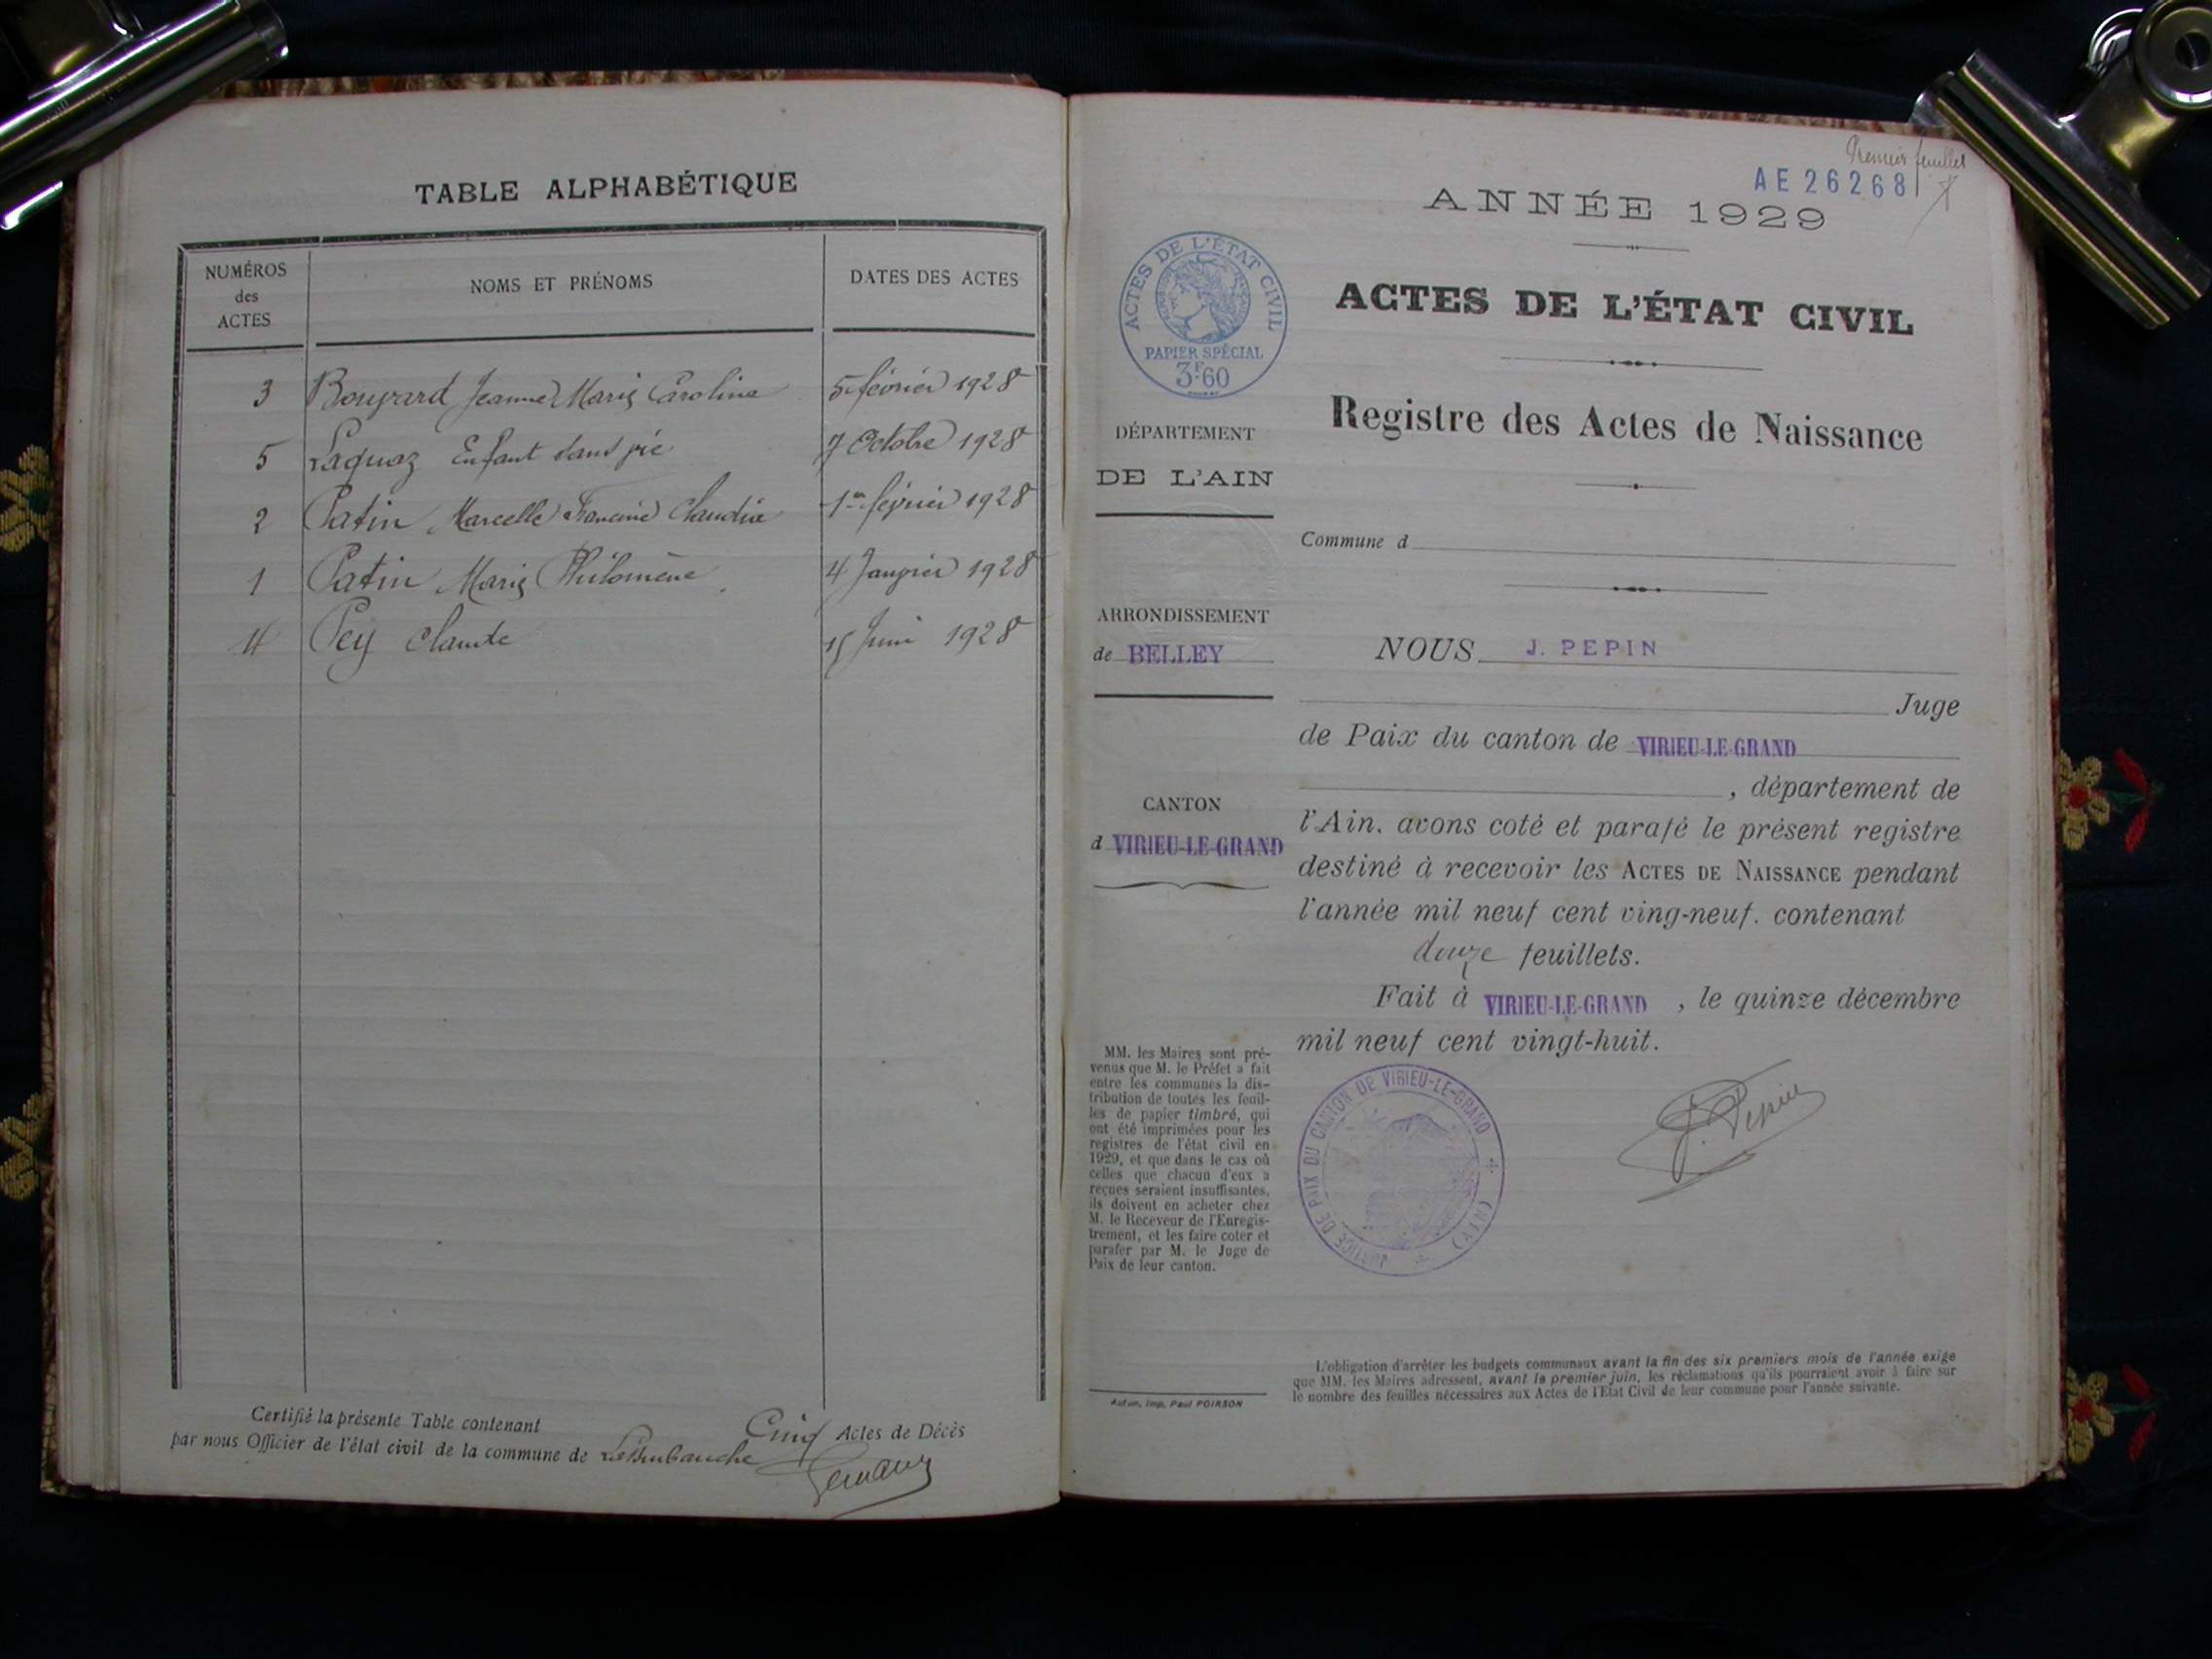 TABLE ALPHABÉTIQUE
NUMÉROS
des
ACTES
NOMS ET PRÉNOMS
DATES DES ACTES
3 Bouvard Jeanne Marie Caroline 5 février 1928
5 Laquaz Enfant sans vie 7 Octobre 1928
2 Patin Marcelle Francine Claudia 1er février 1928
1 Patin Marie Philomène 4 Janvier 1928
4 Pey Claude 15 Juin 1928
Certifié la présente Table contenant Cinq Actes de Décès
par nous Officier de l'état civil de la commune de
Premier feuillet
AE 26268
ANNÉE 1929
ACTES DE L'ÉTAT CIVIL
PAPIER SPÉCIAL
3F60
ACTES DE L'ÉTAT CIVIL
Registre des Actes de Naissance
DÉPARTEMENT
DE L'AIN
Commune d
ARRONDISSEMENT
de BELLEY
CANTON
d VIRIEU-LE-GRAND
NOUS J. PEPIN
Juge
de Paix du canton de VIRIEU-LE-GRAND
, département de
l'Ain. avons coté et parafé le présent registre
destiné à recevoir les ACTES DE NAISSANCE pendant
l'année mil neuf cent ving-neuf. contenant
douze feuillets.
Fait à VIRIEU-LE-GRAND , le quinze décembre
mil neuf cent vingt-huit.
MM. les Maires sont pré-
venus que M. le Préfet a fait
entre les communes la dis-
tribution de toutes les feuil-
les de papier timbré, qui
ont été imprimées pour les
registres de l'état civil en
1929, et que dans le cas où
celles que chacun d'eux a
reçues seraient insuffisantes,
ils doivent en acheter chez
M. le Receveur de l'Enregis-
trement, et les faire coter et
parafer par M. le Juge de
Paix de leur canton.
JUSTICE DE PAIX DU CANTON DE VIRIEU-LE-GRAND (AIN)
J. Pepin
L'obligation d'arrêter les budgets communaux avant la fin des six premiers mois de l'année exige
que MM. les Maires adressent, avant le premier juin, les réclamations qu'ils pourraient avoir à faire sur
le nombre des feuilles nécessaires aux Actes de l'Etat Civil de leur commune pour l'année suivante.
Autun, Imp. Paul POIRSON